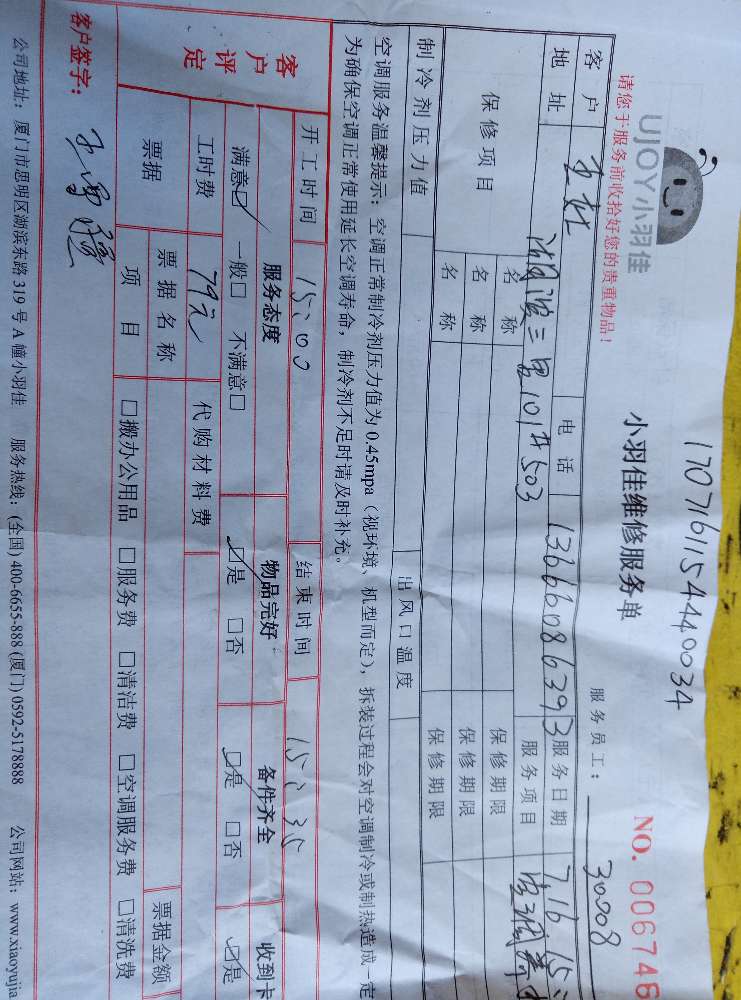 17071611544440034
UJOY小羽佳
小羽佳维修服务单
NO. 006746
请您于服务前收拾好您的贵重物品！
服务员工： 30008
客户 电话 13666086393 服务日期 7.16 15:
地址 湖滨三里101#503 服务项目
保修项目 名称 保修期限
名称 保修期限
名称 保修期限
制冷剂压力值 出风口温度
空调服务温馨提示：空调正常制冷剂压力值为 0.45mpa（视环境、机型而定），拆装过程会对空调制冷或制热造成一定
为确保空调正常使用延长空调寿命，制冷剂不足时请及时补充。
开工时间 15:00 结束时间 15:35
客户评定 服务态度 物品完好 备件齐全 收到卡
满意☑ 一般□ 不满意□ ☑是 □否 ☑是 □否 ☑是
工时费 79元 代购材料费
票据 票据名称 票据金额
项目 □搬办公用品 □服务费 □清洁费 □空调服务费 □清洗费
客户签字：
公司地址：厦门市思明区湖滨东路 319 号 A 幢小羽佳 服务热线：(全国) 400-6655-888 (厦门) 0592-5178888 公司网站：www.xiaoyujia